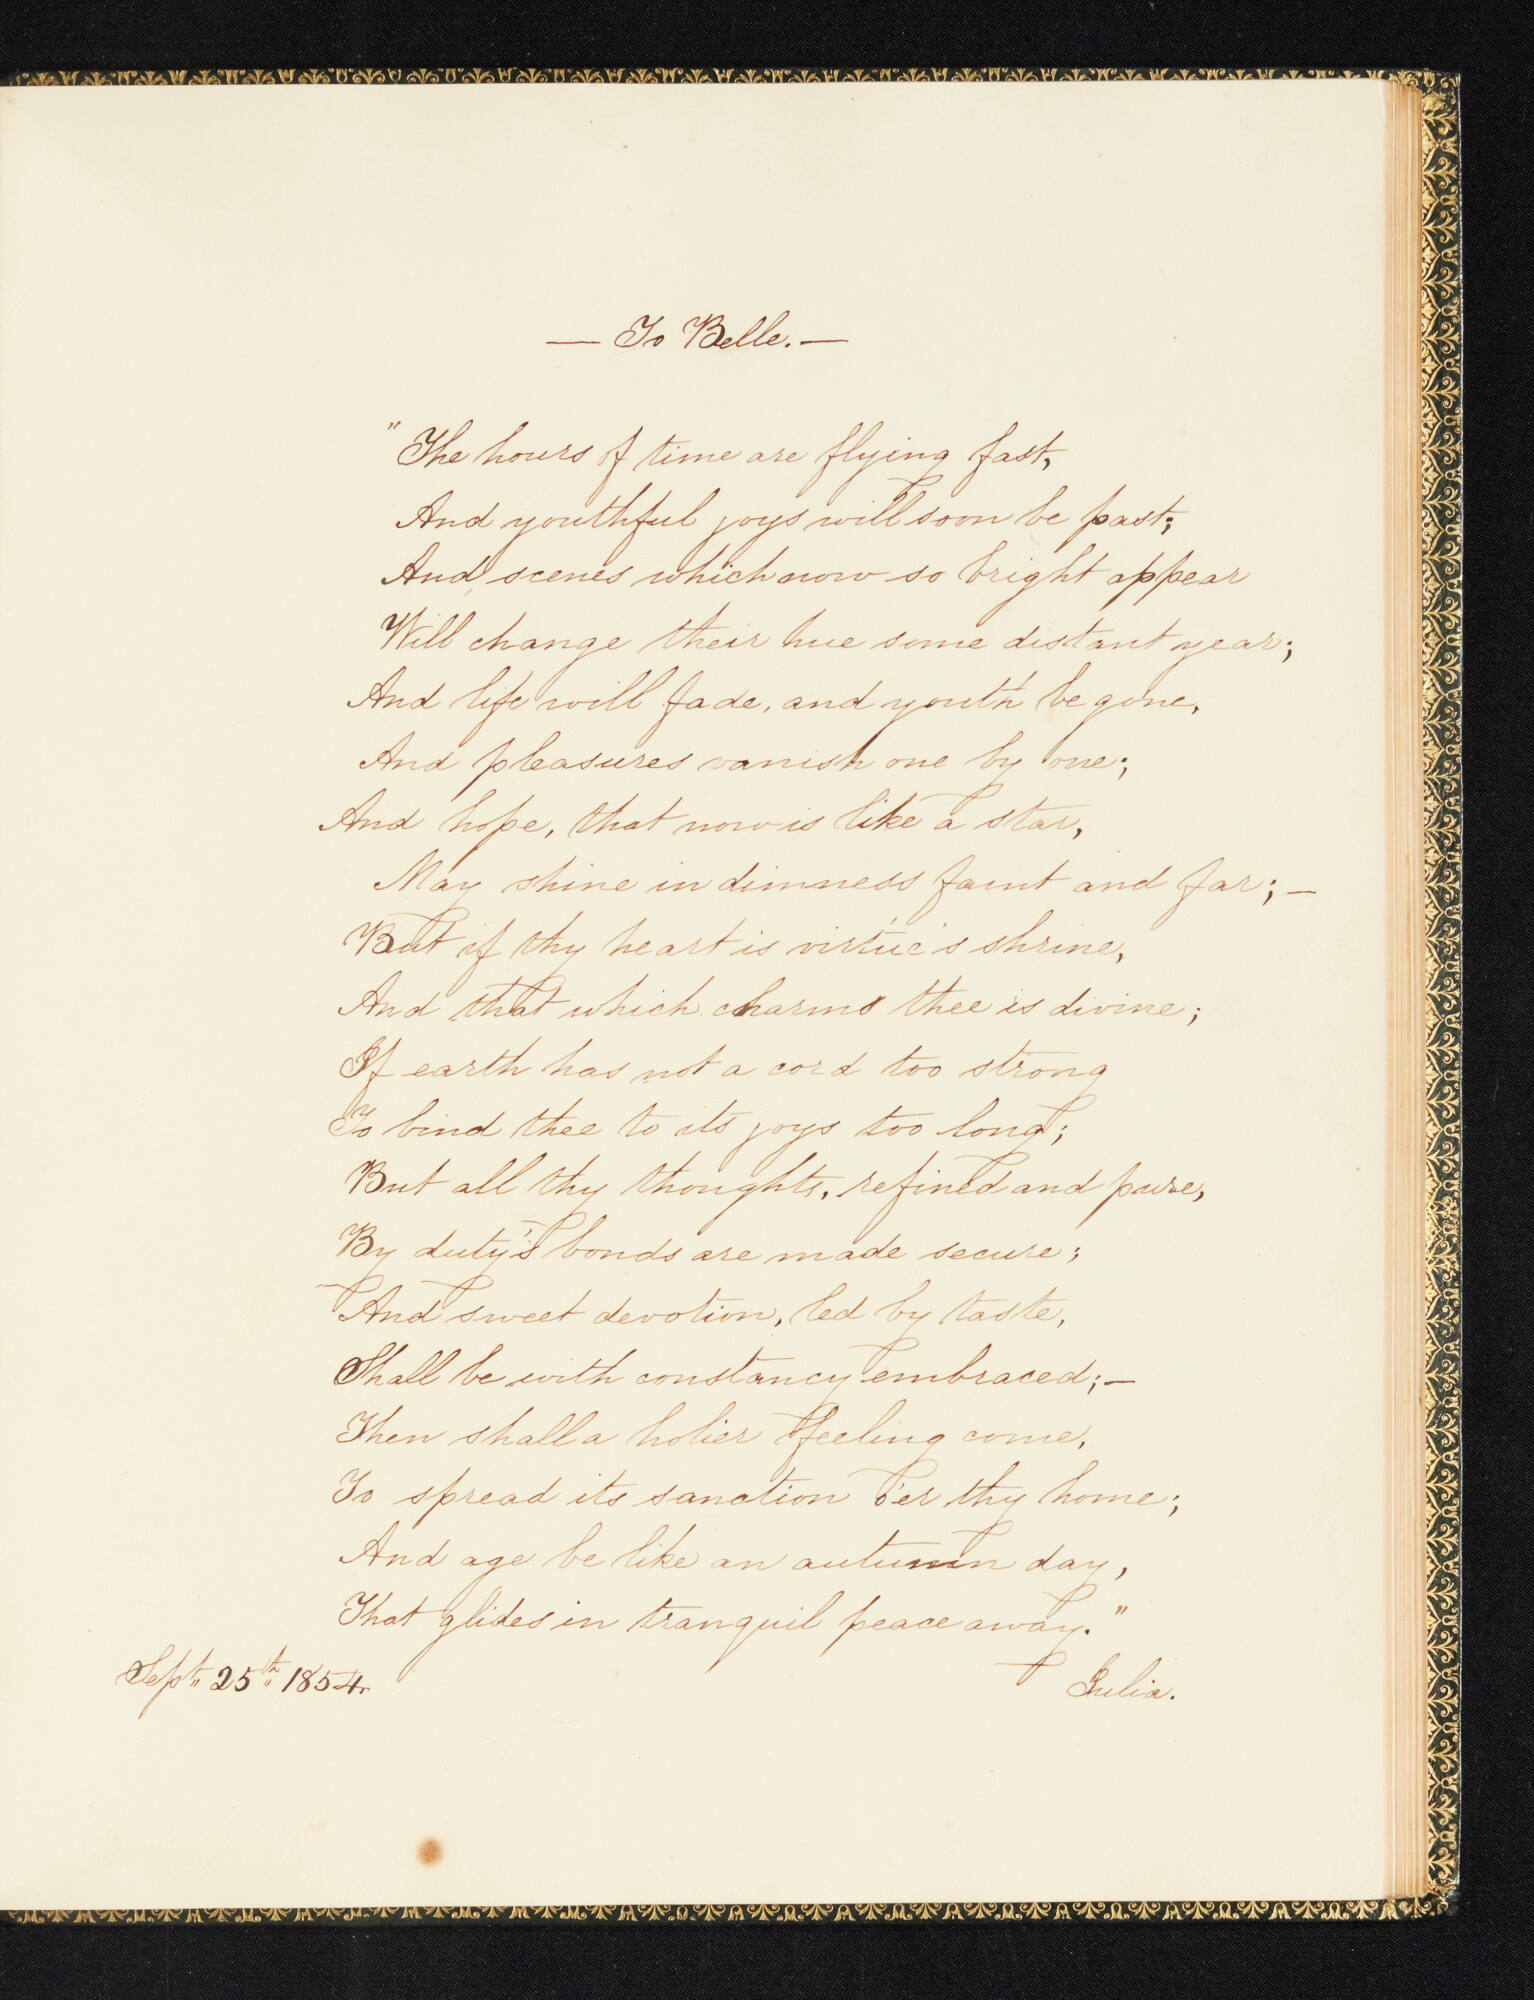 — To Belle. —
"The hours of time are flying fast,
And youthful joys will soon be past;
And scenes which now so bright appear
Will change their hue some distant year;
And life will fade, and youth be gone,
And pleasures vanish one by one;
And hope, that now is like a star,
May shine in dimness faint and far; —
But if thy heart is virtue's shrine,
And that which charms thee is divine;
If earth has not a cord too strong
To bind thee to its joys too long;
But all thy thoughts, refined and pure,
By duty's bonds are made secure;
And sweet devotion, led by taste,
Shall be with constancy embraced; —
Then shall a holier feeling come,
To spread its sanction o'er thy home;
And age be like an autumn day,
That glides in tranquil peace away."
Sept. 25th 1854.
Julia.